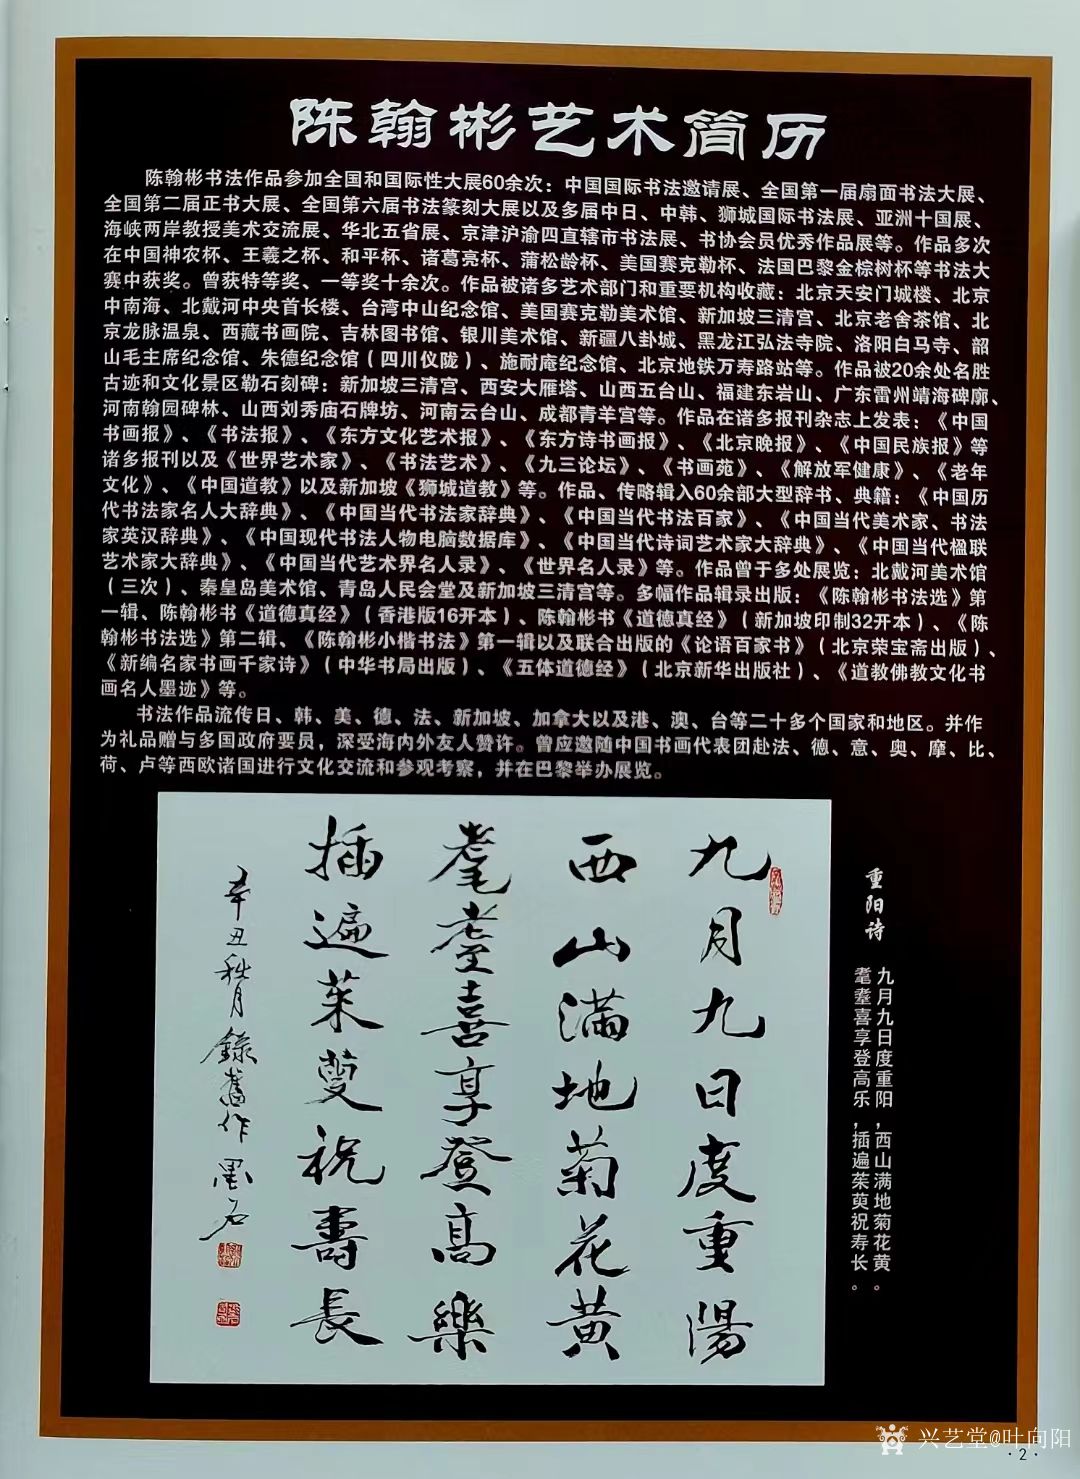 陈翰彬艺术简历
陈翰彬书法作品参加全国和国际性大展60余次：中国国际书法邀请展、全国第一届扇面书法大展、
全国第二届正书大展、全国第六届书法篆刻大展以及多届中日、中韩、狮城国际书法展、亚洲十国展、
海峡两岸教授美术交流展、华北五省展、京津沪渝四直辖市书法展、书协会员优秀作品展等。作品多次
在中国神农杯、王羲之杯、和平杯、诸葛亮杯、蒲松龄杯、美国赛克勒杯、法国巴黎金棕树杯等书法大
赛中获奖。曾获特等奖、一等奖十余次。作品被诸多艺术部门和重要机构收藏：北京天安门城楼、北京
中南海、北戴河中央首长楼、台湾中山纪念馆、美国赛克勒美术馆、新加坡三清宫、北京老舍茶馆、北
京龙脉温泉、西藏书画院、吉林图书馆、银川美术馆、新疆八卦城、黑龙江弘法寺院、洛阳白马寺、韶
山毛主席纪念馆、朱德纪念馆（四川仪陇）、施耐庵纪念馆、北京地铁万寿路站等。作品被20余处名胜
古迹和文化景区勒石刻碑：新加坡三清宫、西安大雁塔、山西五台山、福建东岩山、广东雷州靖海碑廓、
河南翰园碑林、山西刘秀庙石牌坊、河南云台山、成都青羊宫等。作品在诸多报刊杂志上发表：《中国
书画报》、《书法报》、《东方文化艺术报》、《东方诗书画报》、《北京晚报》、《中国民族报》等
诸多报刊以及《世界艺术家》、《书法艺术》、《九三论坛》、《书画苑》、《解放军健康》、《老年
文化》、《中国道教》以及新加坡《狮城道教》等。作品、传略辑入60余部大型辞书、典籍：《中国历
代书法家名人大辞典》、《中国当代书法家辞典》、《中国当代书法百家》、《中国当代美术家、书法
家英汉辞典》、《中国现代书法人物电脑数据库》、《中国当代诗词艺术家大辞典》、《中国当代楹联
艺术家大辞典》、《中国当代艺术界名人录》、《世界名人录》等。作品曾于多处展览：北戴河美术馆
（三次）、秦皇岛美术馆、青岛人民会堂及新加坡三清宫等。多幅作品辑录出版：《陈翰彬书法选》第
一辑、陈翰彬书《道德真经》（香港版16开本）、陈翰彬书《道德真经》（新加坡印制32开本）、《陈
翰彬书法选》第二辑、《陈翰彬小楷书法》第一辑以及联合出版的《论语百家书》（北京荣宝斋出版）、
《新编名家书画千家诗》（中华书局出版）、《五体道德经》（北京新华出版社）、《道教佛教文化书
画名人墨迹》等。
书法作品流传日、韩、美、德、法、新加坡、加拿大以及港、澳、台等二十多个国家和地区。并作
为礼品赠与多国政府要员，深受海内外友人赞许。曾应邀随中国书画代表团赴法、德、意、奥、摩、比、
荷、卢等西欧诸国进行文化交流和参观考察，并在巴黎举办展览。
重阳诗
九月九日度重阳，西山满地菊花黄。
耄耋喜享登高乐，插遍茱萸祝寿长。
九月九日度重陽
西山滿地菊花黃
耄耋喜享登高樂
插遍茱萸祝壽長
辛丑秋月錄舊作 墨石
兴艺堂@叶向阳
·2·